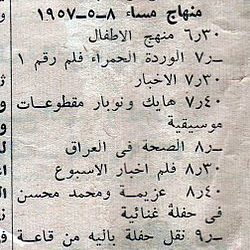 منهاج مساء ٨-٥-١٩٥٧
٦ر٣٠ منهج الاطفال
٧ر- الوردة الحمراء فلم رقم ١
٧ر٣٠ الاخبار
٧ر٤٠ هايك ونوبار مقطوعات
موسيقية
٨ر- الصحة فى العراق
٨ر٣٠ فلم اخبار الاسبوع
٨ر٤٠ عزيمة ومحمد محسن
فى حفلة غنائية
٩ر- نقل حفلة باليه من قاعة